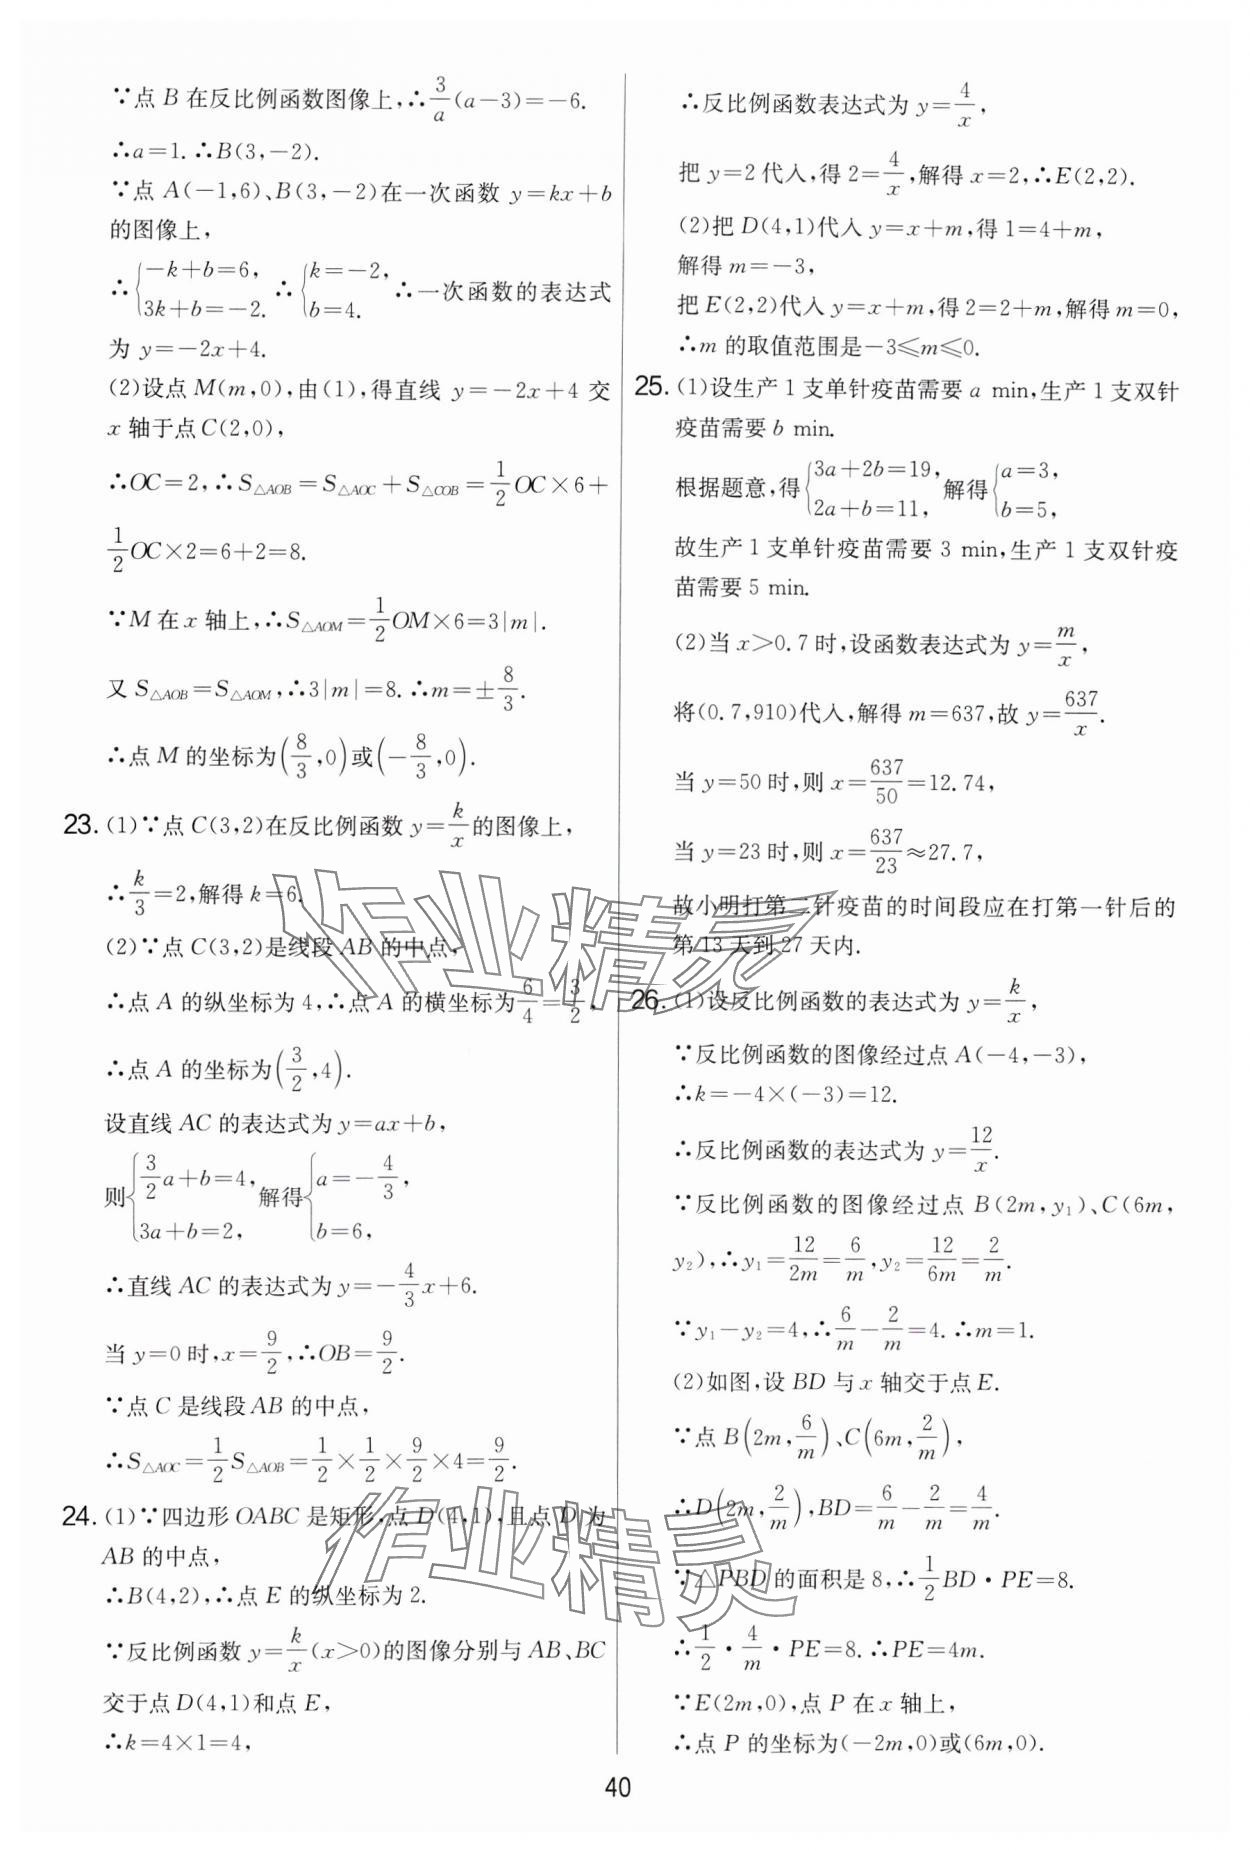 ∵点 B 在反比例函数图像上,∴3/a(a-3)=-6.
∴a=1.∴B(3,-2).
∵点 A(-1,6)、B(3,-2)在一次函数 y=kx+b
的图像上,
∴{-k+b=6, 3k+b=-2. ∴{k=-2, b=4. ∴一次函数的表达式
为 y=-2x+4.
(2)设点 M(m,0),由(1),得直线 y=-2x+4 交
x 轴于点 C(2,0),
∴OC=2,∴S△AOB=S△AOC+S△COB=1/2 OC×6+
1/2 OC×2=6+2=8.
∵M 在 x 轴上,∴S△AOM=1/2 OM×6=3|m|.
又 S△AOB=S△AOM,∴3|m|=8.∴m=±8/3.
∴点 M 的坐标为(8/3,0)或(-8/3,0).
23.(1)∵点 C(3,2)在反比例函数 y=k/x 的图像上,
∴k/3=2,解得 k=6.
(2)∵点 C(3,2)是线段 AB 的中点,
∴点 A 的纵坐标为 4,∴点 A 的横坐标为 6/4=3/2,
∴点 A 的坐标为(3/2,4).
设直线 AC 的表达式为 y=ax+b,
则{3/2 a+b=4, 3a+b=2, 解得{a=-4/3, b=6,
∴直线 AC 的表达式为 y=-4/3 x+6.
当 y=0 时,x=9/2,∴OB=9/2.
∵点 C 是线段 AB 的中点,
∴S△AOC=1/2 S△AOB=1/2×1/2×9/2×4=9/2.
24.(1)∵四边形 OABC 是矩形,点 D(4,1),且点 D 为
AB 的中点,
∴B(4,2),∴点 E 的纵坐标为 2.
∵反比例函数 y=k/x(x>0)的图像分别与 AB、BC
交于点 D(4,1)和点 E,
∴k=4×1=4,
∴反比例函数表达式为 y=4/x,
把 y=2 代入,得 2=4/x,解得 x=2,∴E(2,2).
(2)把 D(4,1)代入 y=x+m,得 1=4+m,
解得 m=-3,
把 E(2,2)代入 y=x+m,得 2=2+m,解得 m=0,
∴m 的取值范围是-3≤m≤0.
25.(1)设生产 1 支单针疫苗需要 a min,生产 1 支双针
疫苗需要 b min.
根据题意,得{3a+2b=19, 2a+b=11, 解得{a=3, b=5,
故生产 1 支单针疫苗需要 3 min,生产 1 支双针疫
苗需要 5 min.
(2)当 x>0.7 时,设函数表达式为 y=m/x,
将(0.7,910)代入,解得 m=637,故 y=637/x.
当 y=50 时,则 x=637/50=12.74,
当 y=23 时,则 x=637/23≈27.7,
故小明打第二针疫苗的时间段应在打第一针后的
第 13 天到 27 天内.
26.(1)设反比例函数的表达式为 y=k/x,
∵反比例函数的图像经过点 A(-4,-3),
∴k=-4×(-3)=12.
∴反比例函数的表达式为 y=12/x.
∵反比例函数的图像经过点 B(2m,y₁)、C(6m,
y₂),∴y₁=12/2m=6/m,y₂=12/6m=2/m.
∵y₁-y₂=4,∴6/m-2/m=4.∴m=1.
(2)如图,设 BD 与 x 轴交于点 E.
∵点 B(2m,6/m)、C(6m,2/m),
∴D(2m,2/m),BD=6/m-2/m=4/m.
∵△PBD 的面积是 8,∴1/2 BD·PE=8.
∴1/2·4/m·PE=8.∴PE=4m.
∵E(2m,0),点 P 在 x 轴上,
∴点 P 的坐标为(-2m,0)或(6m,0).
40
作业精灵
作业精灵